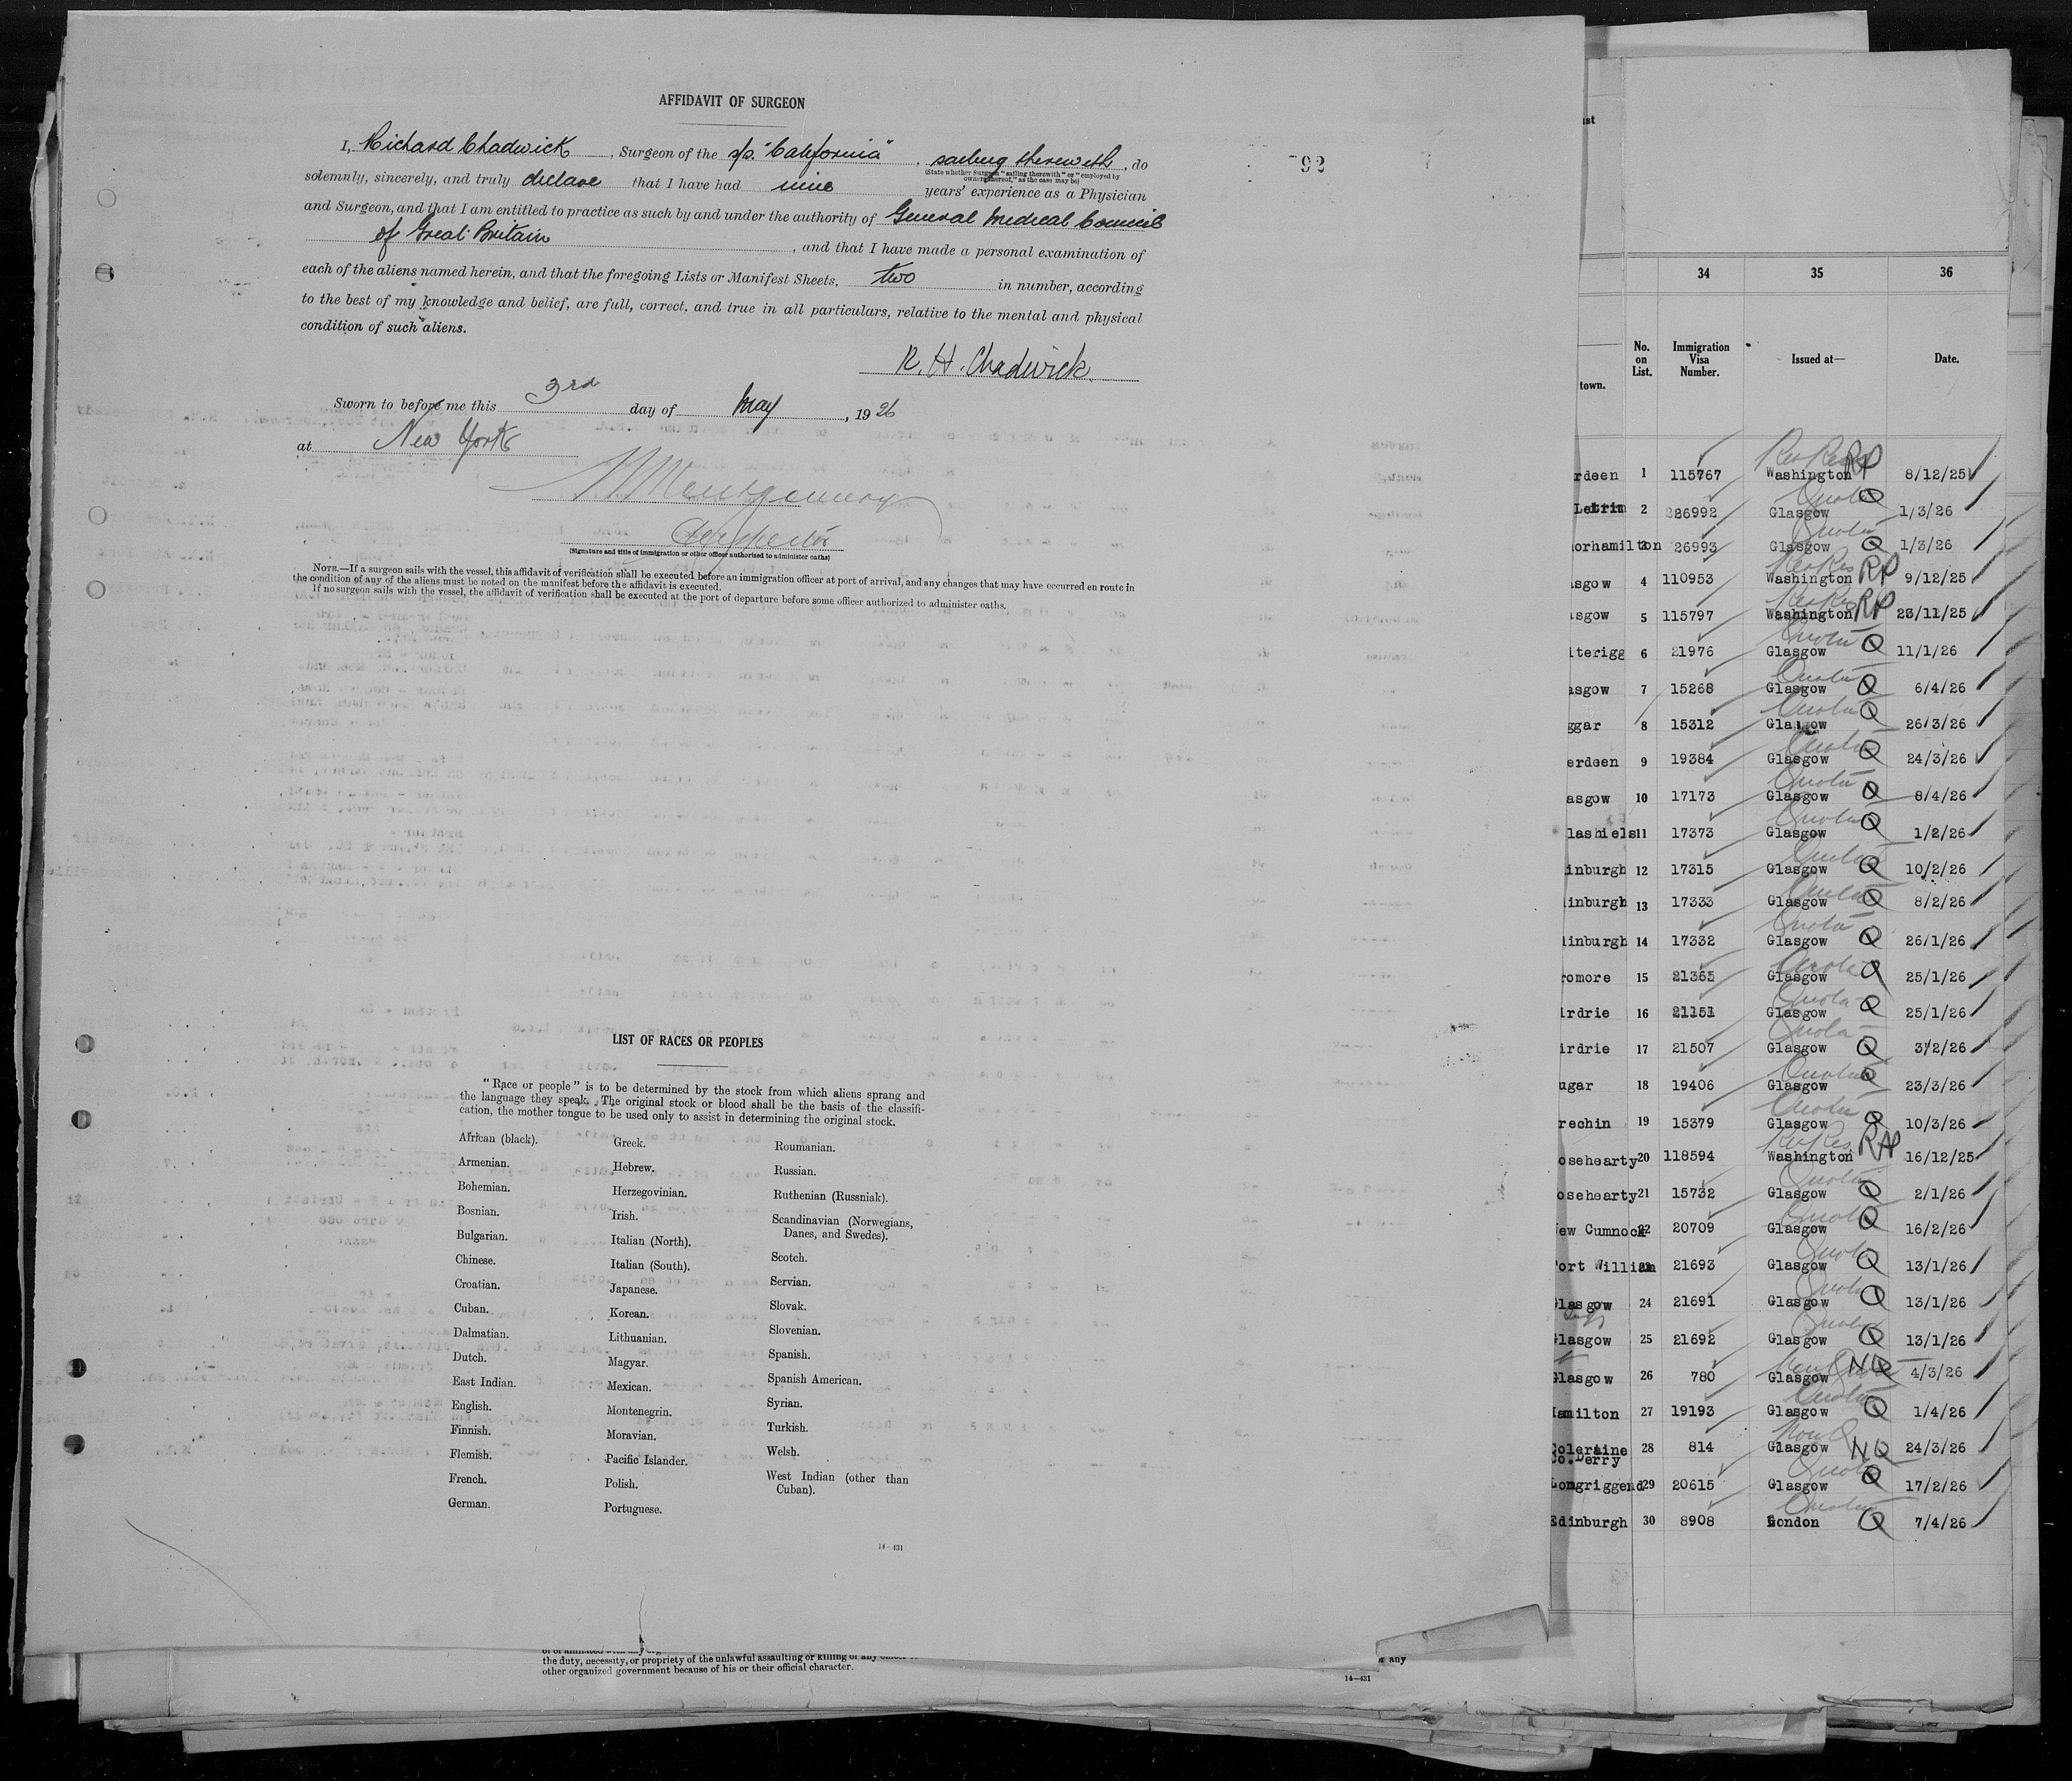 AFFIDAVIT OF SURGEON
I, Richard Chadwick, Surgeon of the s/s. "California", sailing therewith, do
(State whether Surgeon "sailing therewith" or "employed by
owners thereof," as the case may be)
solemnly, sincerely, and truly declare that I have had nine years' experience as a Physician
and Surgeon, and that I am entitled to practice as such by and under the authority of General Medical Council
of Great Britain, and that I have made a personal examination of
each of the aliens named herein, and that the foregoing Lists or Manifest Sheets, two in number, according
to the best of my knowledge and belief, are full, correct, and true in all particulars, relative to the mental and physical
condition of such aliens.
R. H. Chadwick
Sworn to before me this 3rd day of May, 1926
at New York
Montgomery
Inspector
(Signature and title of immigration or other officer authorized to administer oaths)
NOTE.—If a surgeon sails with the vessel, this affidavit of verification shall be executed before an immigration officer at port of arrival, and any changes that may have occurred en route in
the condition of any of the aliens must be noted on the manifest before the affidavit is executed.
If no surgeon sails with the vessel, the affidavit of verification shall be executed at the port of departure before some officer authorized to administer oaths.
92
LIST OF RACES OR PEOPLES
"Race or people" is to be determined by the stock from which aliens sprang and
the language they speak. The original stock or blood shall be the basis of the classifi-
cation, the mother tongue to be used only to assist in determining the original stock.
African (black).
Armenian.
Bohemian.
Bosnian.
Bulgarian.
Chinese.
Croatian.
Cuban.
Dalmatian.
Dutch.
East Indian.
English.
Finnish.
Flemish.
French.
German.
Greek.
Hebrew.
Herzegovinian.
Irish.
Italian (North).
Italian (South).
Japanese.
Korean.
Lithuanian.
Magyar.
Mexican.
Montenegrin.
Moravian.
Pacific Islander.
Polish.
Portuguese.
Roumanian.
Russian.
Ruthenian (Russniak).
Scandinavian (Norwegians,
Danes, and Swedes).
Scotch.
Servian.
Slovak.
Slovenian.
Spanish.
Spanish American.
Syrian.
Turkish.
Welsh.
West Indian (other than
Cuban).
14—431
the duty, necessity, or propriety of the unlawful assaulting or killing of any
other organized government because of his or their official character.
any
14—431
34 35 36
town. No. on List. Immigration Visa Number. Issued at— Date.
rdeen 1 115767 Washington RP 8/12/25
Letrim 2 26992 Glasgow Quota Q 1/3/26
orhamilton 3 26993 Glasgow Quota Q 1/3/26
sgow 4 110953 Washington RP 9/12/25
sgow 5 115797 Washington RP 23/11/25
iterigg 6 21976 Glasgow Quota Q 11/1/26
asgow 7 15268 Glasgow Quota Q 6/4/26
ggar 8 15312 Glasgow Quota Q 26/3/26
erdeen 9 19384 Glasgow Quota Q 24/3/26
asgow 10 17173 Glasgow Quota Q 8/4/26
lashiels 11 17373 Glasgow Quota Q 1/2/26
inburgh 12 17315 Glasgow Quota Q 10/2/26
inburgh 13 17333 Glasgow Quota Q 8/2/26
inburgh 14 17332 Glasgow Quota Q 26/1/26
romore 15 21365 Glasgow Quota Q 25/1/26
irdrie 16 21151 Glasgow Quota Q 25/1/26
irdrie 17 21507 Glasgow Quota Q 3/2/26
ugar 18 19406 Glasgow Quota Q 23/3/26
rechin 19 15379 Glasgow Quota Q 10/3/26
osehearty 20 118594 Washington RP 16/12/25
osehearty 21 15732 Glasgow Quota Q 2/1/26
ew Cumnock 22 20709 Glasgow Quota Q 16/2/26
ort William 23 21693 Glasgow Quota Q 13/1/26
Glasgow 24 21691 Glasgow Quota Q 13/1/26
Glasgow 25 21692 Glasgow Quota Q 13/1/26
Glasgow 26 780 Glasgow Non Quota NQ 4/3/26
Hamilton 27 19193 Glasgow Quota Q 1/4/26
Coleraine Co.Derry 28 814 Glasgow Non Q NQ 24/3/26
Longriggend 29 20615 Glasgow Quota Q 17/2/26
Edinburgh 30 8908 London Quota Q 7/4/26